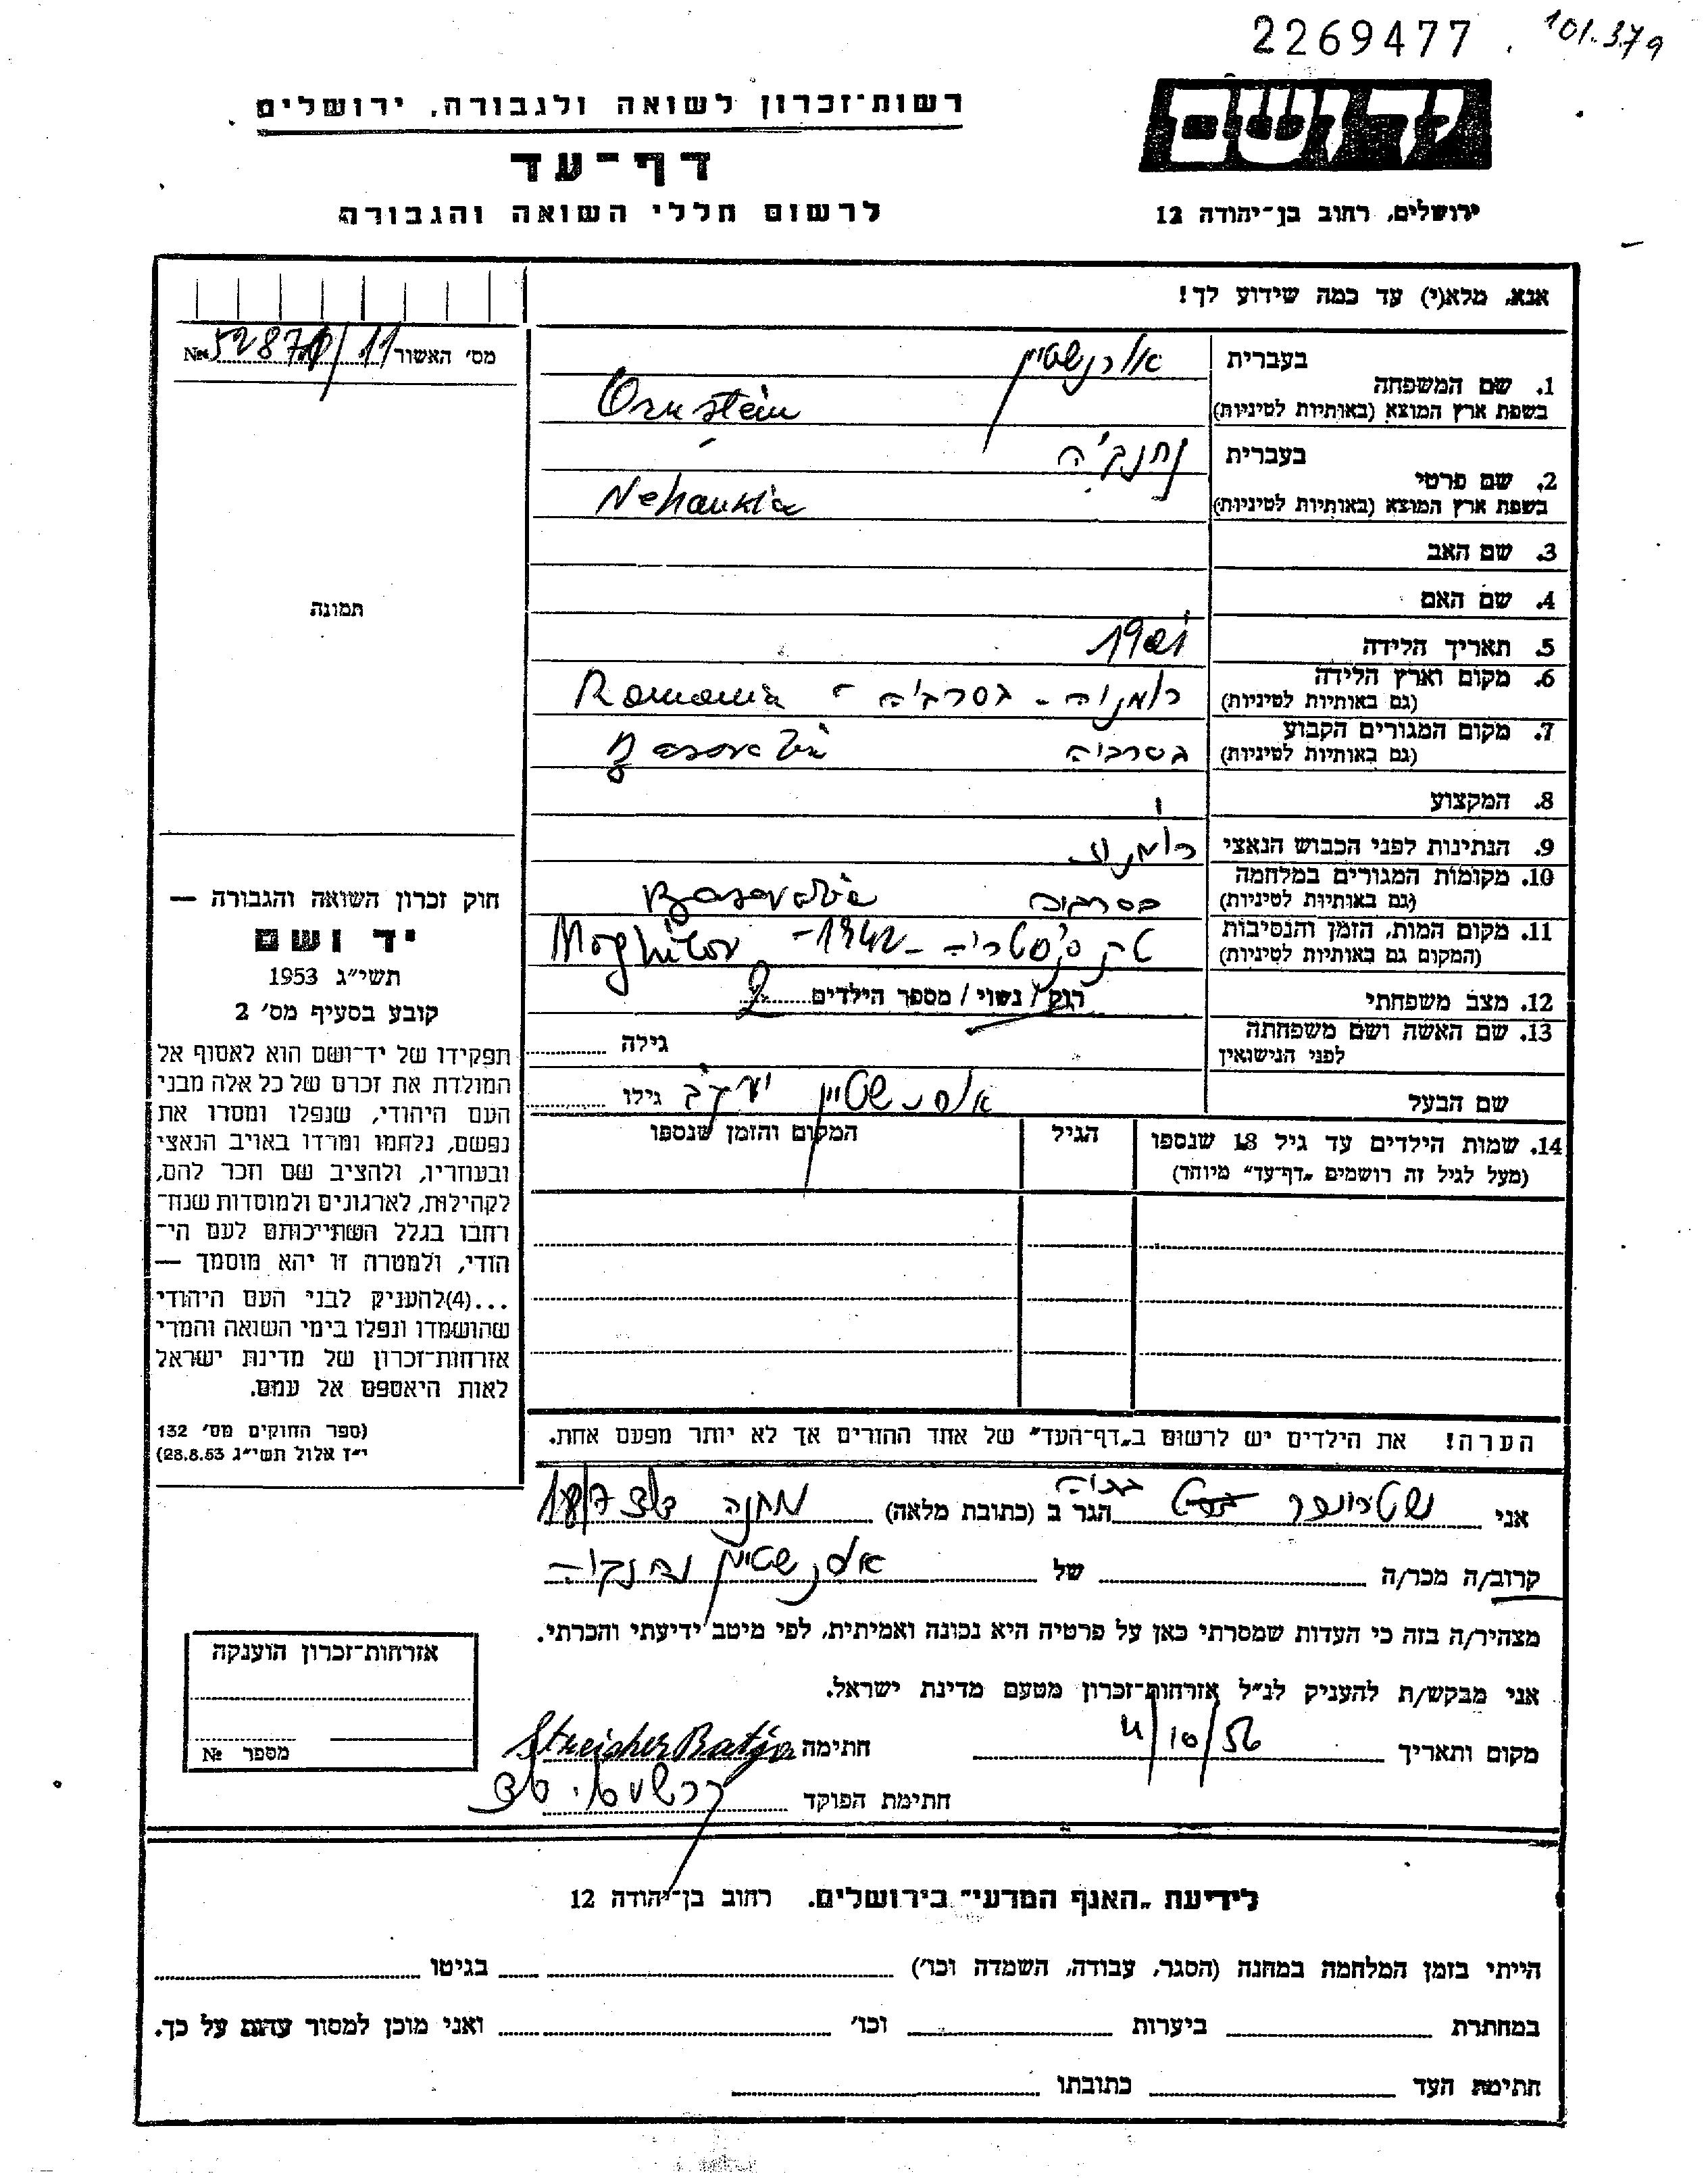 2269477 101.379
רשות־זכרון לשואה ולגבורה, ירושלים
יד ושם
דף־עד
לרשום חללי השואה והגבורה
ירושלים, רחוב בן־יהודה 12
אנא, מלא(י) עד כמה שידוע לך!
מס' האשור 11/ №
1. שם המשפחה
בעברית
בשפת ארץ המוצא (באותיות לטיניות) Ornstein
2. שם פרטי
בעברית
בשפת ארץ המוצא (באותיות לטיניות)
3. שם האב
4. שם האם
תמונה
5. תאריך הלידה
6. מקום וארץ הלידה רומניה - בסרביה - Romania
(גם באותיות לטיניות)
7. מקום המגורים הקבוע בסרביה
(גם באותיות לטיניות)
8. המקצוע
9. הנתינות לפני הכבוש הנאצי
10. מקומות המגורים במלחמה בסרביה
(גם באותיות לטיניות)
11. מקום המות, הזמן והנסיבות 1942 - Moghilov
(המקום גם באותיות לטיניות)
12. מצב משפחתי רוק / נשוי / מספר הילדים 2
13. שם האשה ושם משפחתה גילה
לפני הנישואין
שם הבעל יעקב גילו
14. שמות הילדים עד גיל 18 שנספו הגיל המקום והזמן שנספו
(מעל לגיל זה רושמים „דף־עד" מיוחד)
חוק זכרון השואה והגבורה —
יד ושם
תשי"ג 1953
קובע בסעיף מס' 2
תפקידו של יד־ושם הוא לאסוף אל
המולדת את זכרם של כל אלה מבני
העם היהודי, שנפלו ומסרו את
נפשם, נלחמו ומרדו באויב הנאצי
ובעוזריו, ולהציב שם וזכר להם,
לקהילות, לארגונים ולמוסדות שנח־
רבו בגלל השתייכותם לעם הי־
הודי, ולמטרה זו יהא מוסמך —
...(4)להעניק לבני העם היהודי
שהושמדו ונפלו בימי השואה והמרי
אזרחות־זכרון של מדינת ישראל
לאות היאספם אל עמם.
(ספר החוקים מס' 132
י"ז אלול תשי"ג 28.8.53)
הערה! את הילדים יש לרשום ב„דף־העד" של אחד ההורים אך לא יותר מפעם אחת.
אני הגר ב (כתובת מלאה) מחנה 18/7
קרוב/ה מכר/ה של
מצהיר/ה בזה כי העדות שמסרתי כאן על פרטיה היא נכונה ואמיתית, לפי מיטב ידיעתי והכרתי.
אני מבקש/ת להעניק לנ"ל אזרחות־זכרון מטעם מדינת ישראל.
מקום ותאריך 4/10/56 חתימה
חתימת הפוקד
אזרחות־זכרון הוענקה
מספר №
לידיעת „האגף המדעי" בירושלים. רחוב בן־יהודה 12
הייתי בזמן המלחמה במחנה (הסגר, עבודה, השמדה וכו') בגיטו
במחתרת ביערות וכו' ואני מוכן למסור עדות על כך.
חתימת העד כתובתו